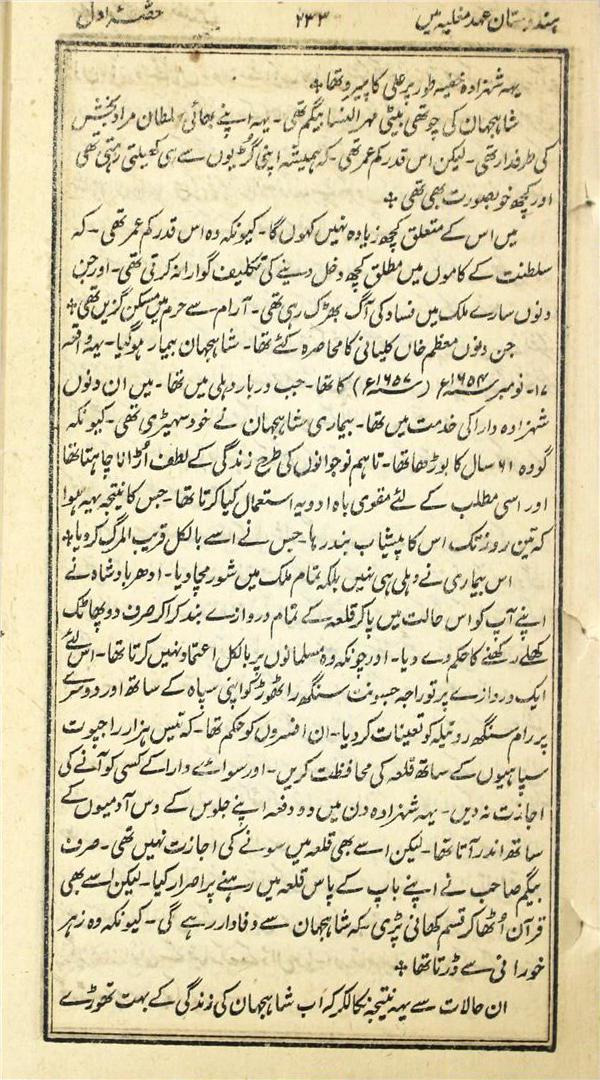 ہندوستان عہد مغلیہ میں ۲۳۳ حصہ اول
یہہ شہزادہ خفیہ طور پر علی کا پیرو تھا ❖
شاہجہان کی چوتھی بیٹی مہر النسا بیگم تھی۔ یہہ اپنے بھائی سلطان مراد بخش
کی طرفدار تھی۔ لیکن اس قدر کم عمر تھی۔ کہ ہمیشہ اپنی گڑیوں سے ہی کھیلتی رہتی تھی
اور کچھ خوبصورت بھی تھی ❖
میں اس کے متعلق کچھ زیادہ نہیں کہوں گا۔ کیونکہ وہ اس قدر کم عمر تھی۔ کہ
سلطنت کے کاموں میں مطلق کچھ دخل دینے کی تکلیف گوارا نہ کرتی تھی۔ اور جن
دنوں سارے ملک میں فساد کی آگ بھڑک رہی تھی۔ آرام سے حرم میں مسکن گزیں تھی ❖
جن دنوں معظم خاں کلیانی کا محاصرہ کئے تھا۔ شاہجہان بیمار ہوگیا۔ یہہ واقعہ
۱۷۔ نومبر ۱۶۵۴ء (۱۶۵۷ء) کا تھا۔ جب دربار دہلی میں تھا۔ میں ان دنوں
شہزادہ دارا کی خدمت میں تھا۔ بیماری شاہجہان نے خود سہیڑی تھی۔ کیونکہ
گو وہ ۶۱ سال کا بوڑھا تھا۔ تاہم نوجوانوں کی طرح زندگی کے لطف اُڑانا چاہتا تھا
اور اسی مطلب کے لئے مقوی باہ ادویہ استعمال کیا کرتا تھا۔ جس کا نتیجہ یہہ ہوا
کہ تین روز تک اس کا پیشاب بند رہا۔ جس نے اسے بالکل قریب المرگ کردیا ❖
اس بیماری نے دہلی ہی نہیں بلکہ تمام ملک میں شور مچا دیا۔ ادھر بادشاہ نے
اپنے آپ کو اس حالت میں پاکر قلعہ کے تمام دروازے بند کراکر صرف دو پھاٹک
کھلے رکھنے کا حکم دے دیا۔ اور چونکہ وہ مسلمانوں پر بالکل اعتماد نہیں کرتا تھا۔ اس لئے
ایک دروازے پر تو راجہ جسونت سنگھ راٹھوڑ کو اپنی سپاہ کے ساتھ اور دوسرے
پر رام سنگھ روٹیلہ کو تعینات کردیا۔ ان افسروں کو حکم تھا۔ کہ تیس ہزار راجپوت
سپاہیوں کے ساتھ قلعہ کی محافظت کریں۔ اور سوائے دارا کے کسی کو آنے کی
اجازت نہ دیں۔ یہہ شہزادہ دن میں دو دفعہ اپنے جلوس کے دس آدمیوں کے
ساتھ اندر آتا تھا۔ لیکن اسے بھی قلعہ میں سونے کی اجازت نہیں تھی۔ صرف
بیگم صاحب نے اپنے باپ کے پاس قلعہ میں رہنے پر اصرار کیا۔ لیکن اسے بھی
قرآن اُٹھا کر قسم کھانی پڑی۔ کہ شاہجہان سے وفادار رہے گی۔ کیونکہ وہ زہر
خورانی سے ڈرتا تھا ❖
ان حالات سے یہہ نتیجہ نکالکر کہ اب شاہجہان کی زندگی کے بہت تھوڑے